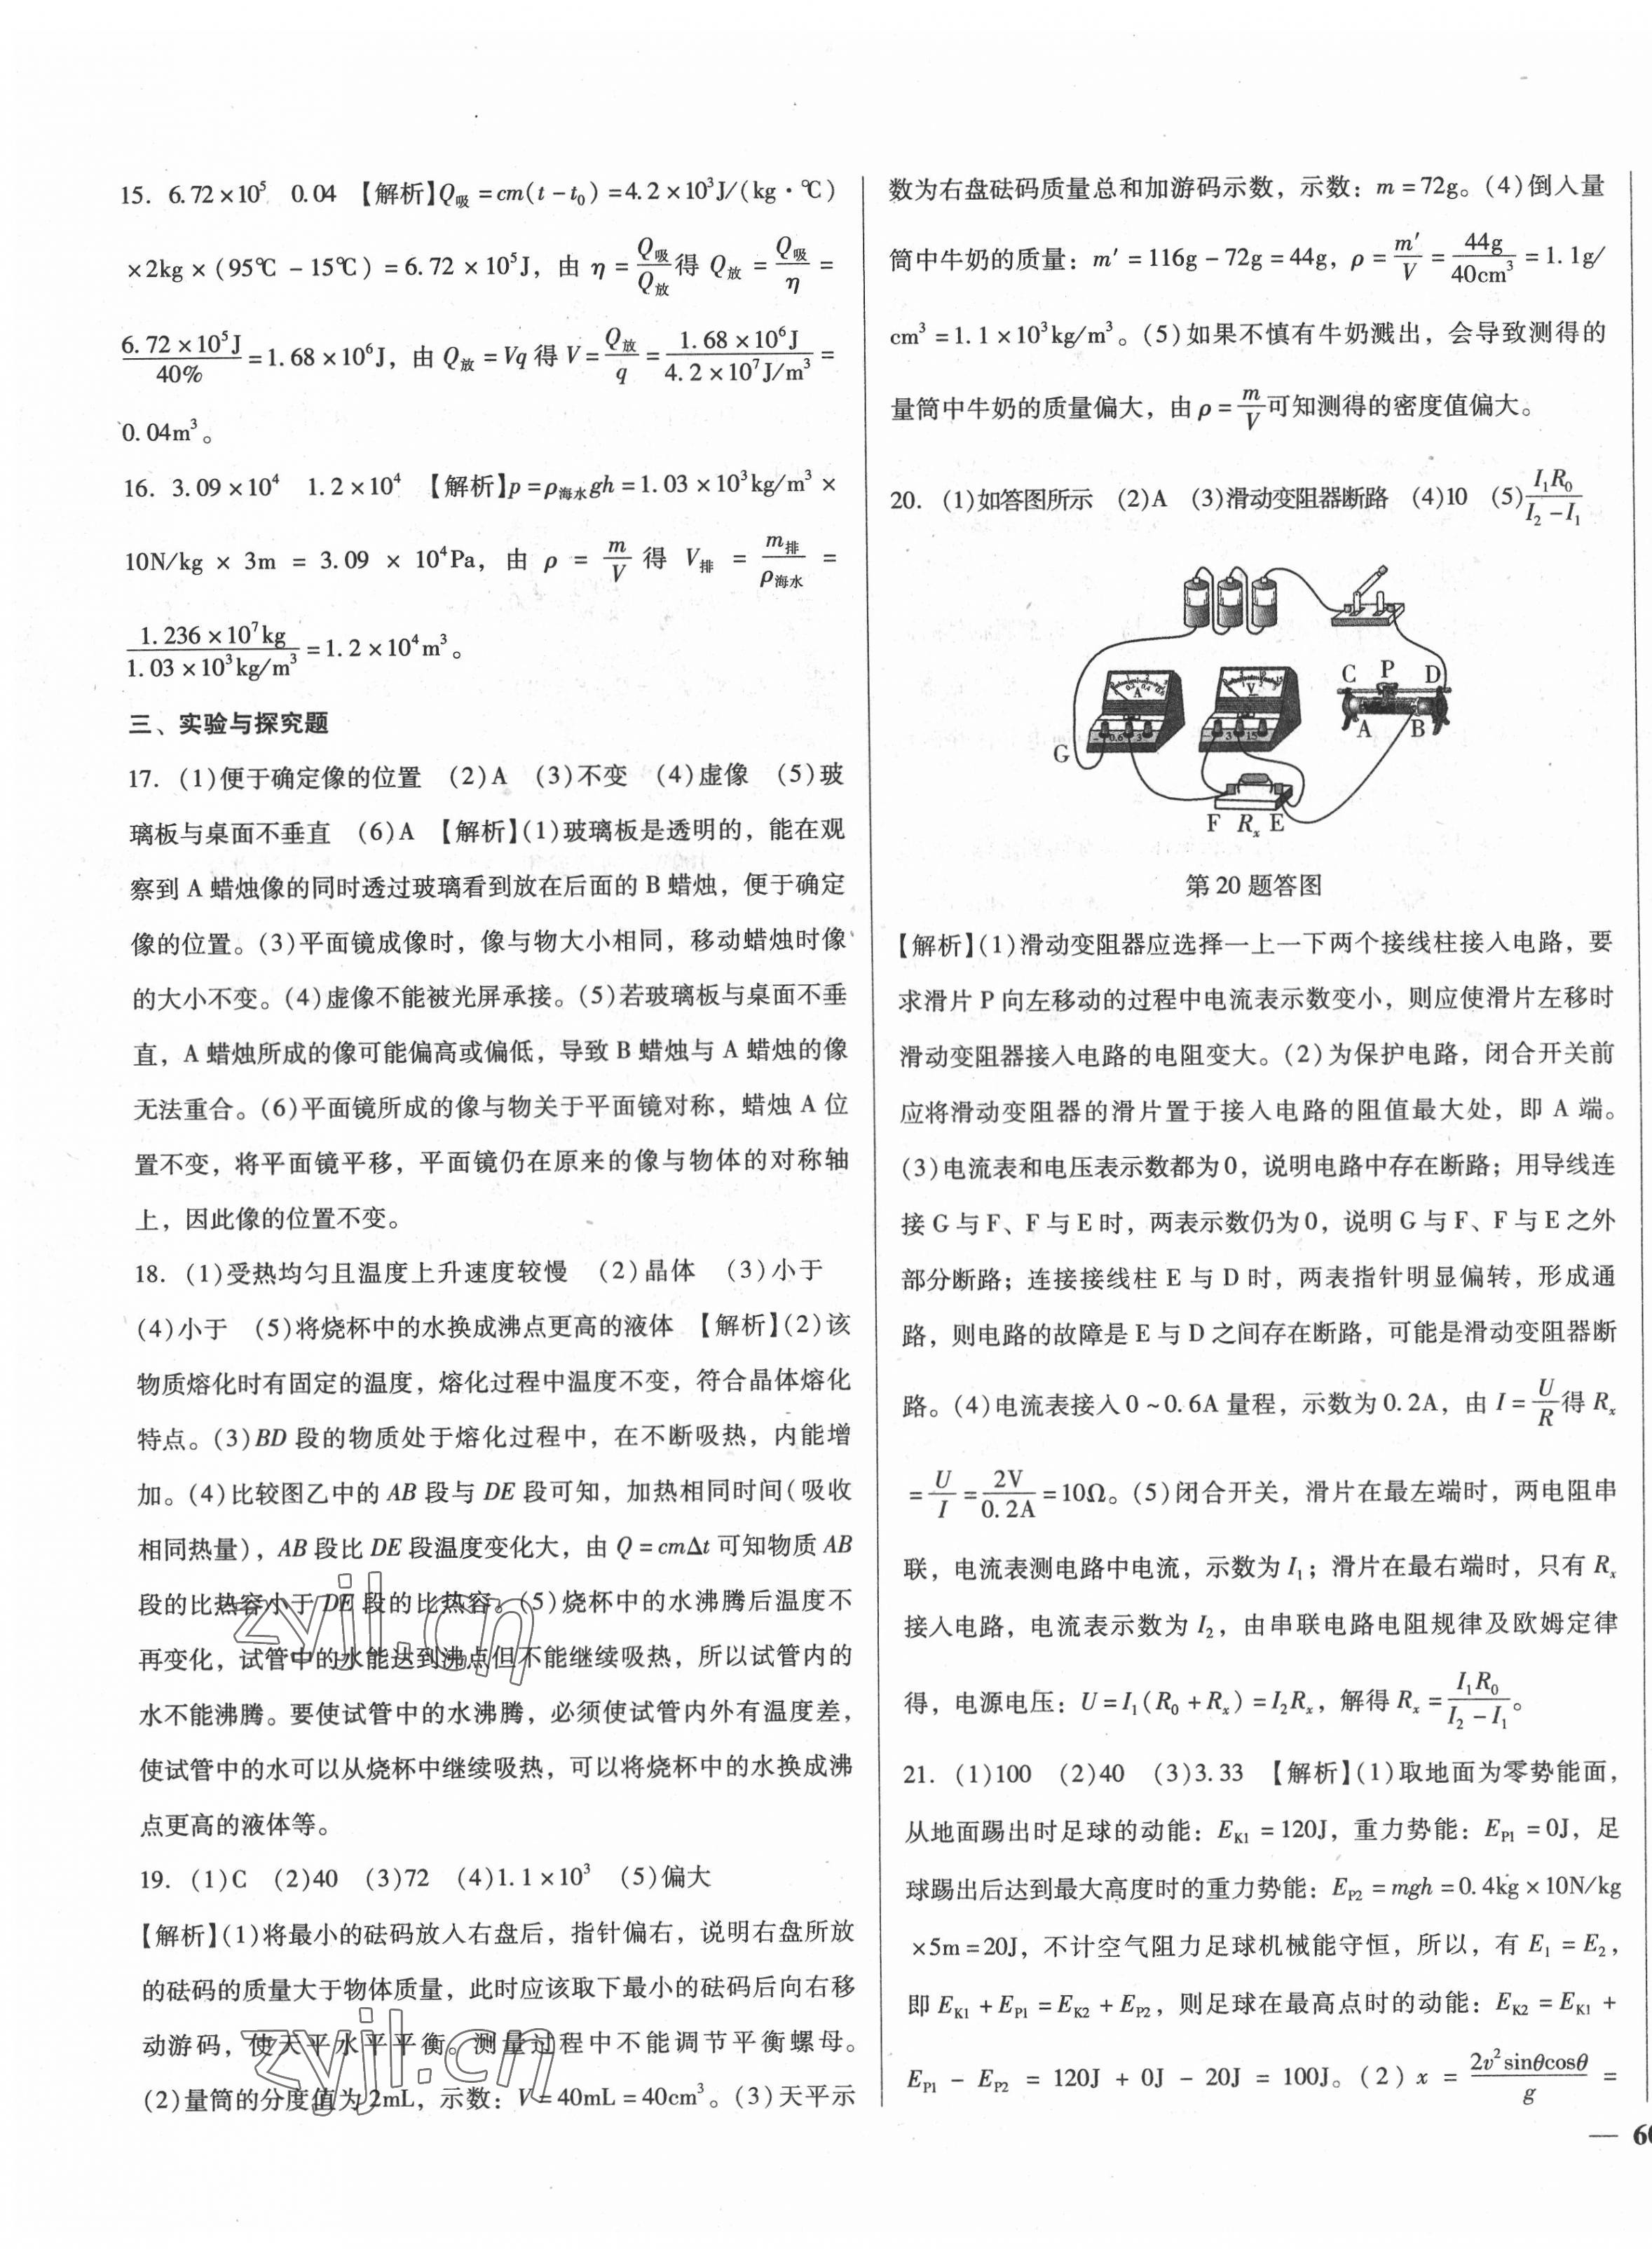 15. 6.72×10⁵ 0.04 【解析】Q吸=cm(t-t₀)=4.2×10³J/(kg·℃)
×2kg×(95℃-15℃)=6.72×10⁵J，由 η=Q吸/Q放 得 Q放=Q吸/η=
6.72×10⁵J/40%=1.68×10⁶J，由 Q放=Vq 得 V=Q放/q=1.68×10⁶J/4.2×10⁷J/m³=
0.04m³。
16. 3.09×10⁴ 1.2×10⁴ 【解析】p=ρ海水gh=1.03×10³kg/m³×
10N/kg×3m=3.09×10⁴Pa，由 ρ=m/V 得 V排=m排/ρ海水=
1.236×10⁷kg/1.03×10³kg/m³=1.2×10⁴m³。
三、实验与探究题
17. (1)便于确定像的位置 (2)A (3)不变 (4)虚像 (5)玻
璃板与桌面不垂直 (6)A 【解析】(1)玻璃板是透明的，能在观
察到 A 蜡烛像的同时透过玻璃看到放在后面的 B 蜡烛，便于确定
像的位置。(3)平面镜成像时，像与物大小相同，移动蜡烛时像
的大小不变。(4)虚像不能被光屏承接。(5)若玻璃板与桌面不垂
直，A 蜡烛所成的像可能偏高或偏低，导致 B 蜡烛与 A 蜡烛的像
无法重合。(6)平面镜所成的像与物关于平面镜对称，蜡烛 A 位
置不变，将平面镜平移，平面镜仍在原来的像与物体的对称轴
上，因此像的位置不变。
18. (1)受热均匀且温度上升速度较慢 (2)晶体 (3)小于
(4)小于 (5)将烧杯中的水换成沸点更高的液体 【解析】(2)该
物质熔化时有固定的温度，熔化过程中温度不变，符合晶体熔化
特点。(3)BD 段的物质处于熔化过程中，在不断吸热，内能增
加。(4)比较图乙中的 AB 段与 DE 段可知，加热相同时间(吸收
相同热量)，AB 段比 DE 段温度变化大，由 Q=cmΔt 可知物质 AB
段的比热容小于 DE 段的比热容。(5)烧杯中的水沸腾后温度不
再变化，试管中的水能达到沸点但不能继续吸热，所以试管内的
水不能沸腾。要使试管中的水沸腾，必须使试管内外有温度差，
使试管中的水可以从烧杯中继续吸热，可以将烧杯中的水换成沸
点更高的液体等。
19. (1)C (2)40 (3)72 (4)1.1×10³ (5)偏大
【解析】(1)将最小的砝码放入右盘后，指针偏右，说明右盘所放
的砝码的质量大于物体质量，此时应该取下最小的砝码后向右移
动游码，使天平水平平衡。测量过程中不能调节平衡螺母。
(2)量筒的分度值为2mL，示数：V=40mL=40cm³。(3)天平示
zyjl.cn
zyjl.cn
数为右盘砝码质量总和加游码示数，示数：m=72g。(4)倒入量
筒中牛奶的质量：m′=116g-72g=44g，ρ=m′/V=44g/40cm³=1.1g/
cm³=1.1×10³kg/m³。(5)如果不慎有牛奶溅出，会导致测得的
量筒中牛奶的质量偏大，由 ρ=m/V 可知测得的密度值偏大。
20. (1)如答图所示 (2)A (3)滑动变阻器断路 (4)10 (5)I₁R₀/(I₂-I₁)
A
V
C P D
A B
- 0.6 3
- 3 15
G
F Rₓ E
第 20 题答图
【解析】(1)滑动变阻器应选择一上一下两个接线柱接入电路，要
求滑片 P 向左移动的过程中电流表示数变小，则应使滑片左移时
滑动变阻器接入电路的电阻变大。(2)为保护电路，闭合开关前
应将滑动变阻器的滑片置于接入电路的阻值最大处，即 A 端。
(3)电流表和电压表示数都为0，说明电路中存在断路；用导线连
接 G 与 F、F 与 E 时，两表示数仍为0，说明 G 与 F、F 与 E 之外
部分断路；连接接线柱 E 与 D 时，两表指针明显偏转，形成通
路，则电路的故障是 E 与 D 之间存在断路，可能是滑动变阻器断
路。(4)电流表接入0~0.6A 量程，示数为0.2A，由 I=U/R 得 Rₓ
=U/I=2V/0.2A=10Ω。(5)闭合开关，滑片在最左端时，两电阻串
联，电流表测电路中电流，示数为 I₁；滑片在最右端时，只有 Rₓ
接入电路，电流表示数为 I₂，由串联电路电阻规律及欧姆定律
得，电源电压：U=I₁(R₀+Rₓ)=I₂Rₓ，解得 Rₓ=I₁R₀/(I₂-I₁)。
21. (1)100 (2)40 (3)3.33 【解析】(1)取地面为零势能面，
从地面踢出时足球的动能：E_K1=120J，重力势能：E_P1=0J，足
球踢出后达到最大高度时的重力势能：E_P2=mgh=0.4kg×10N/kg
×5m=20J，不计空气阻力足球机械能守恒，所以，有 E₁=E₂，
即 E_K1+E_P1=E_K2+E_P2，则足球在最高点时的动能：E_K2=E_K1+
E_P1-E_P2=120J+0J-20J=100J。(2)x=2v²sinθcosθ/g=